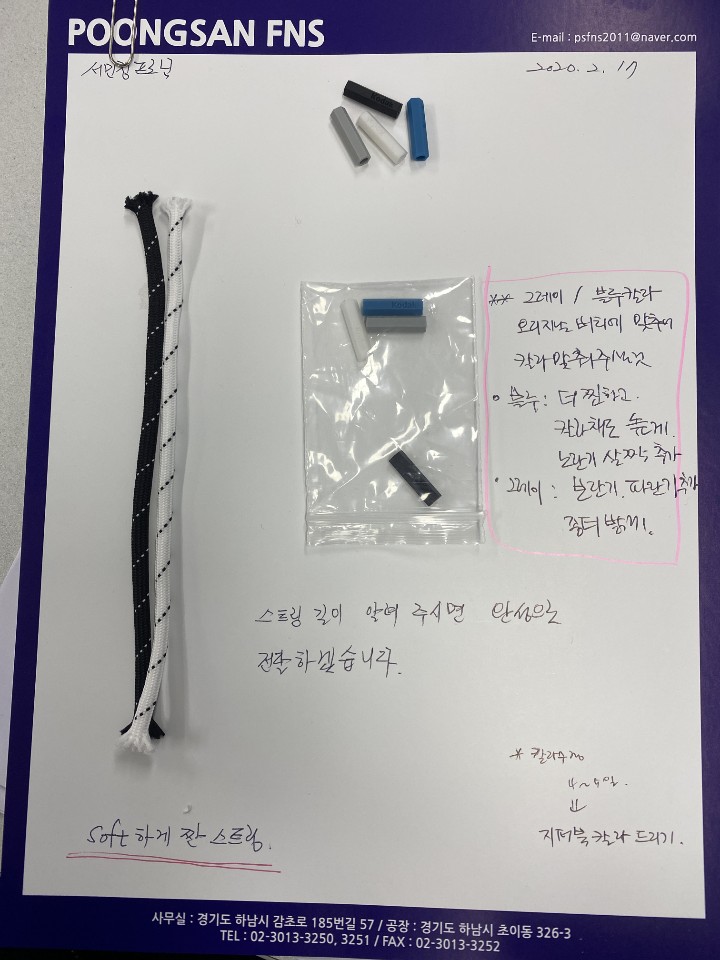 POONGSAN FNS
E-mail : psfns2011@naver.com
서민정 프로님
2020. 2. 17
** 그레이 / 블루칼라
오리지날 버티에 맞추어
칼라 맞춰주시는것
• 블루 : 더 찐하고.
칼라채도 높게.
노란기 살짝 추가
• 그레이 : 빨간기, 파란기 추가
좀더 밝게.
스트링 길이 알려 주시면 완성으로
전달하겠습니다.
* 칼라수정
4~5일.
⇓
지퍼북 칼라 드리기.
soft 하게 짠 스트링.
사무실 : 경기도 하남시 감초로 185번길 57 / 공장 : 경기도 하남시 초이동 326-3
TEL : 02-3013-3250, 3251 / FAX : 02-3013-3252